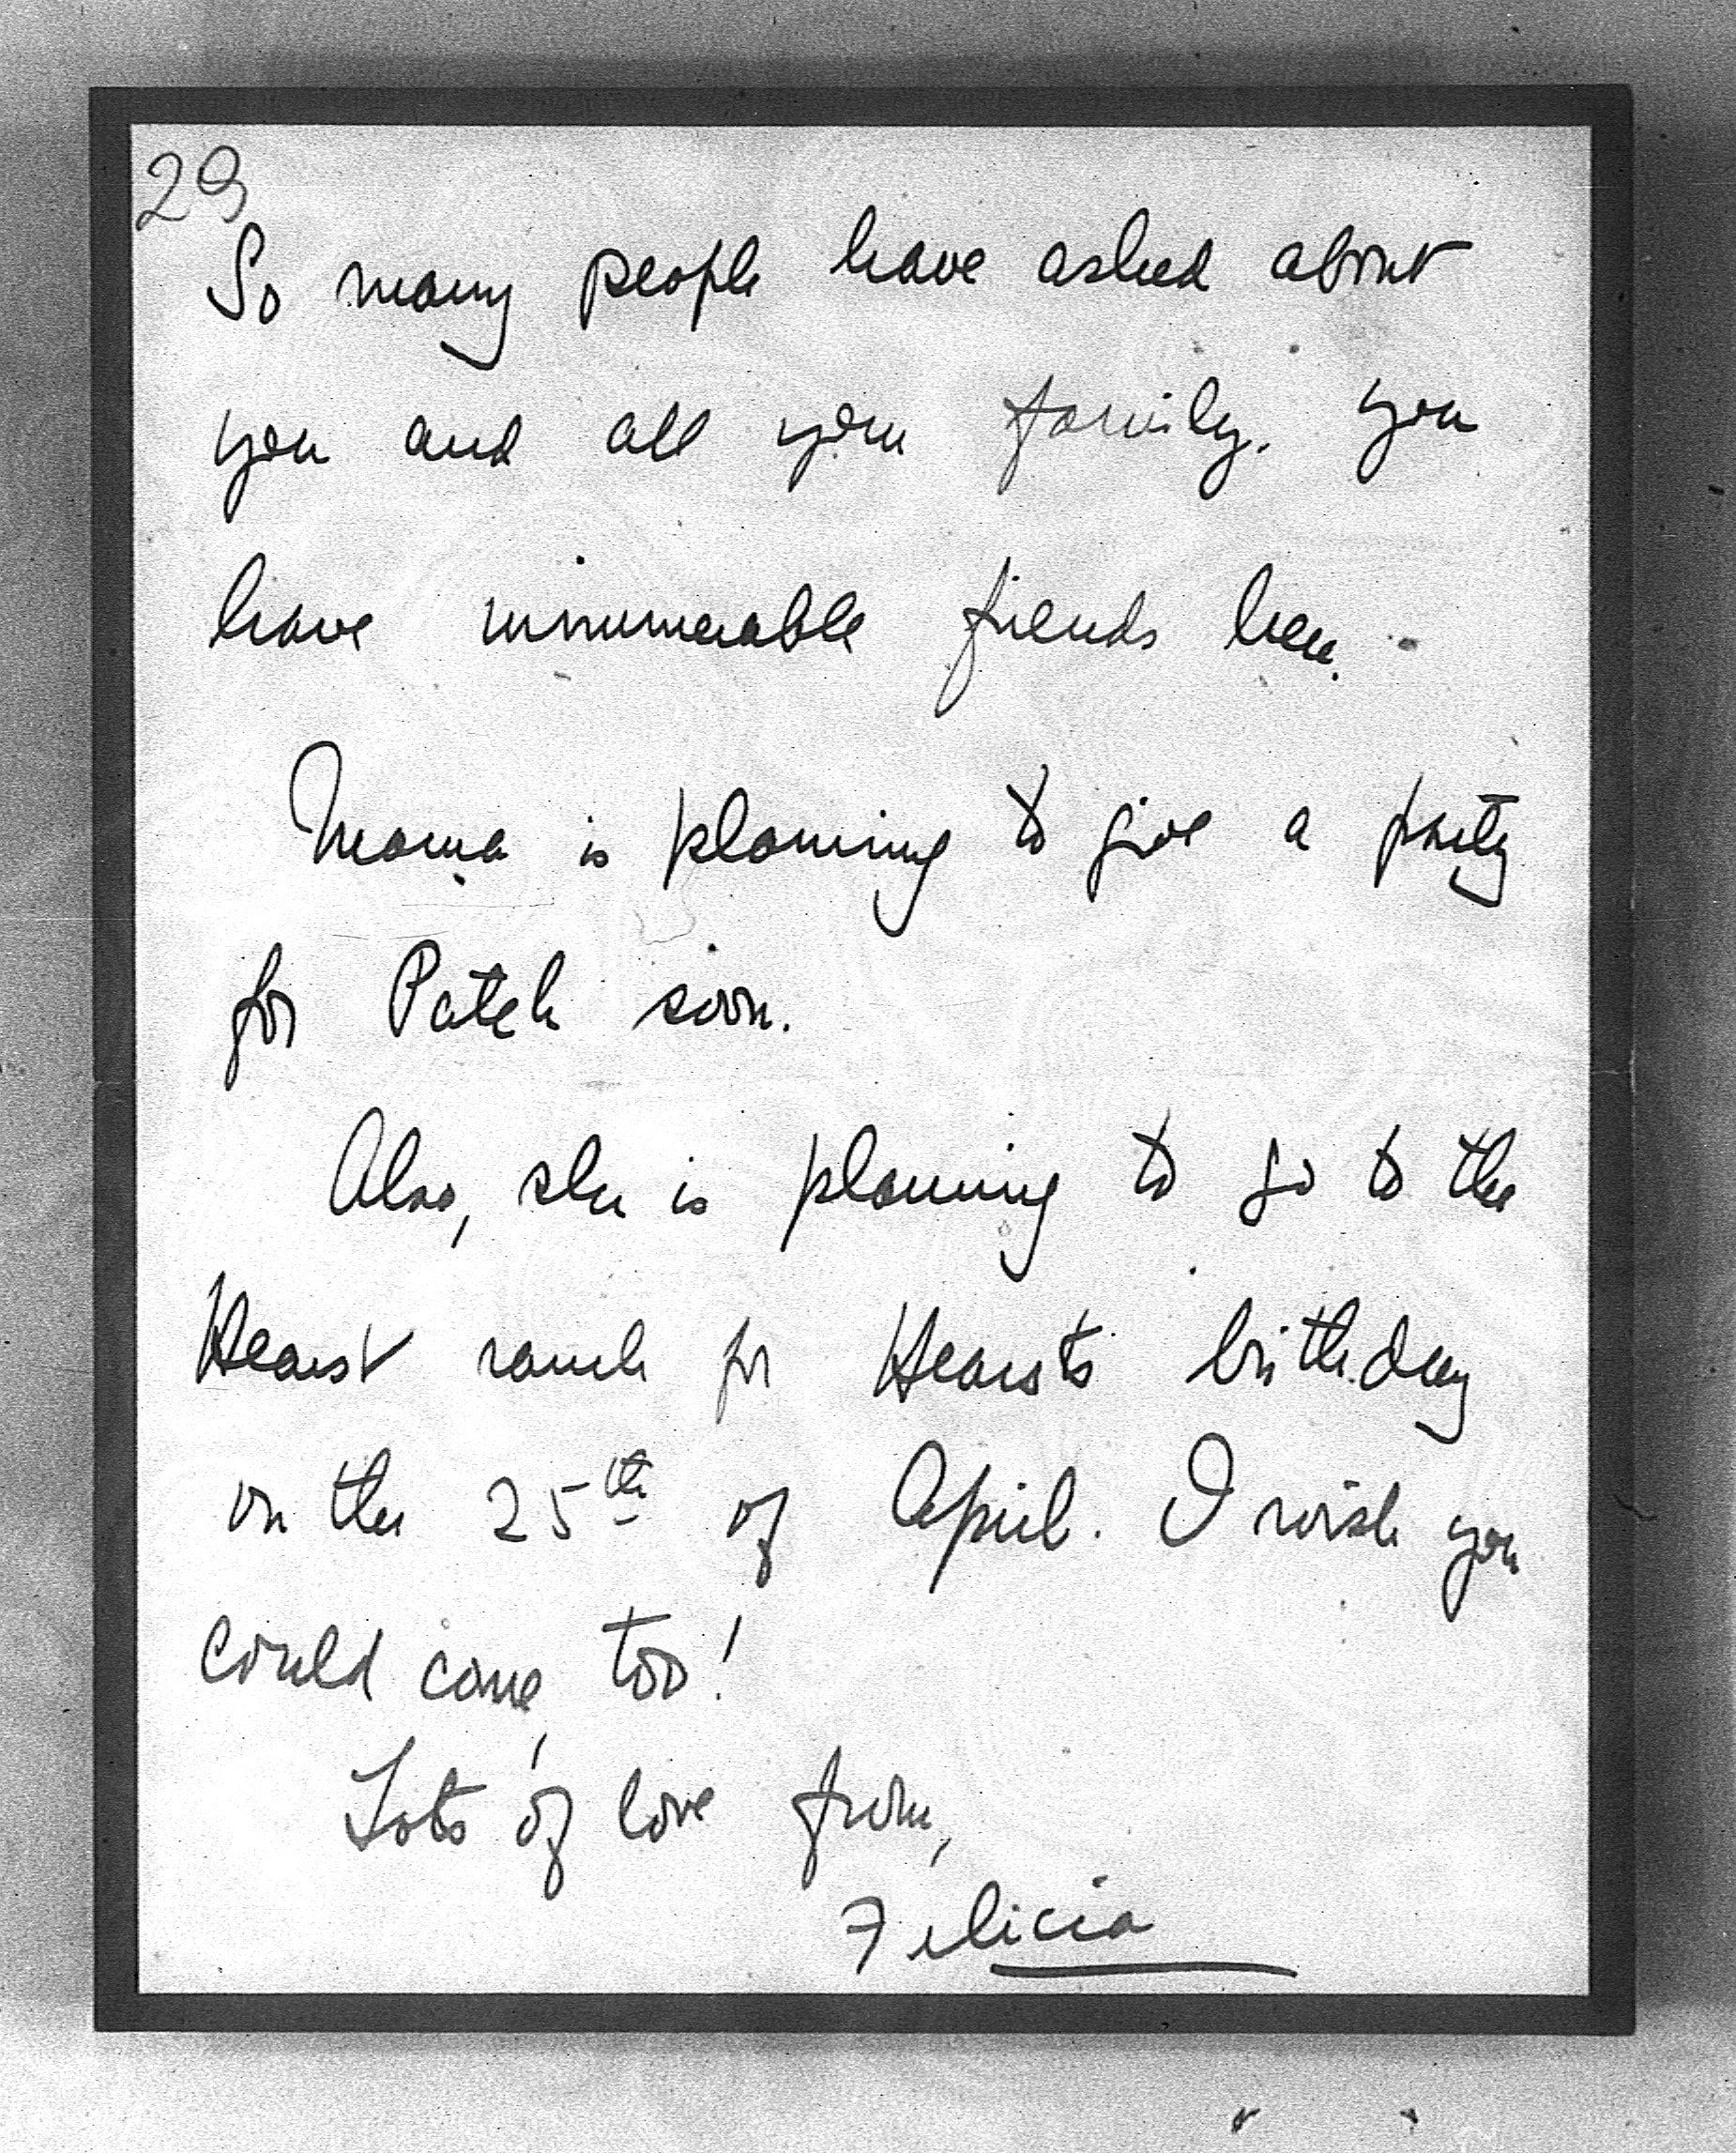 29
So many people have asked about
you and all your family. You
have innumerable friends here.
Mama is planning to give a party
for Patch soon.
Also, she is planning to go to the
Hearst ranch for Hearst's birthday
on the 25th of April. I wish you
could come, too!
Lots of love from,
Felicia